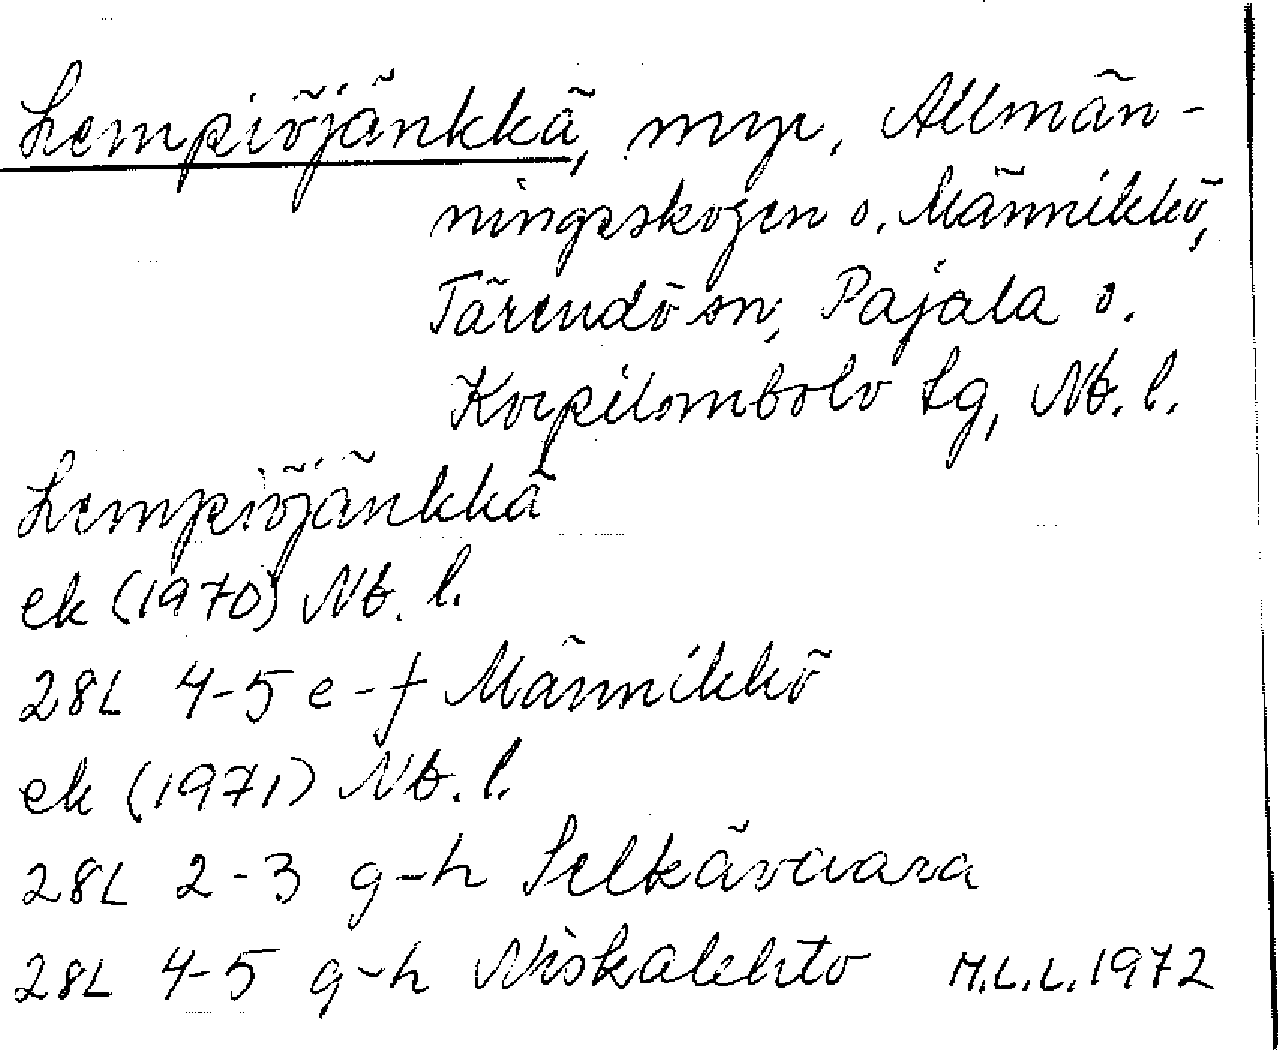 Lempiöjänkkä, myr, Allmän-
ningsskogen o. Männikkö,
Tärendö sn, Pajala o.
Korpilombolo tg, Nb. l.
Lempiöjänkkä
ek (1970) Nb. l.
28L 4-5 e-f Männikkö
ek (1971) Nb. l.
28L 2-3 g-h Selkävaara
28L 4-5 g-h Niskalehto M.L.L. 1972